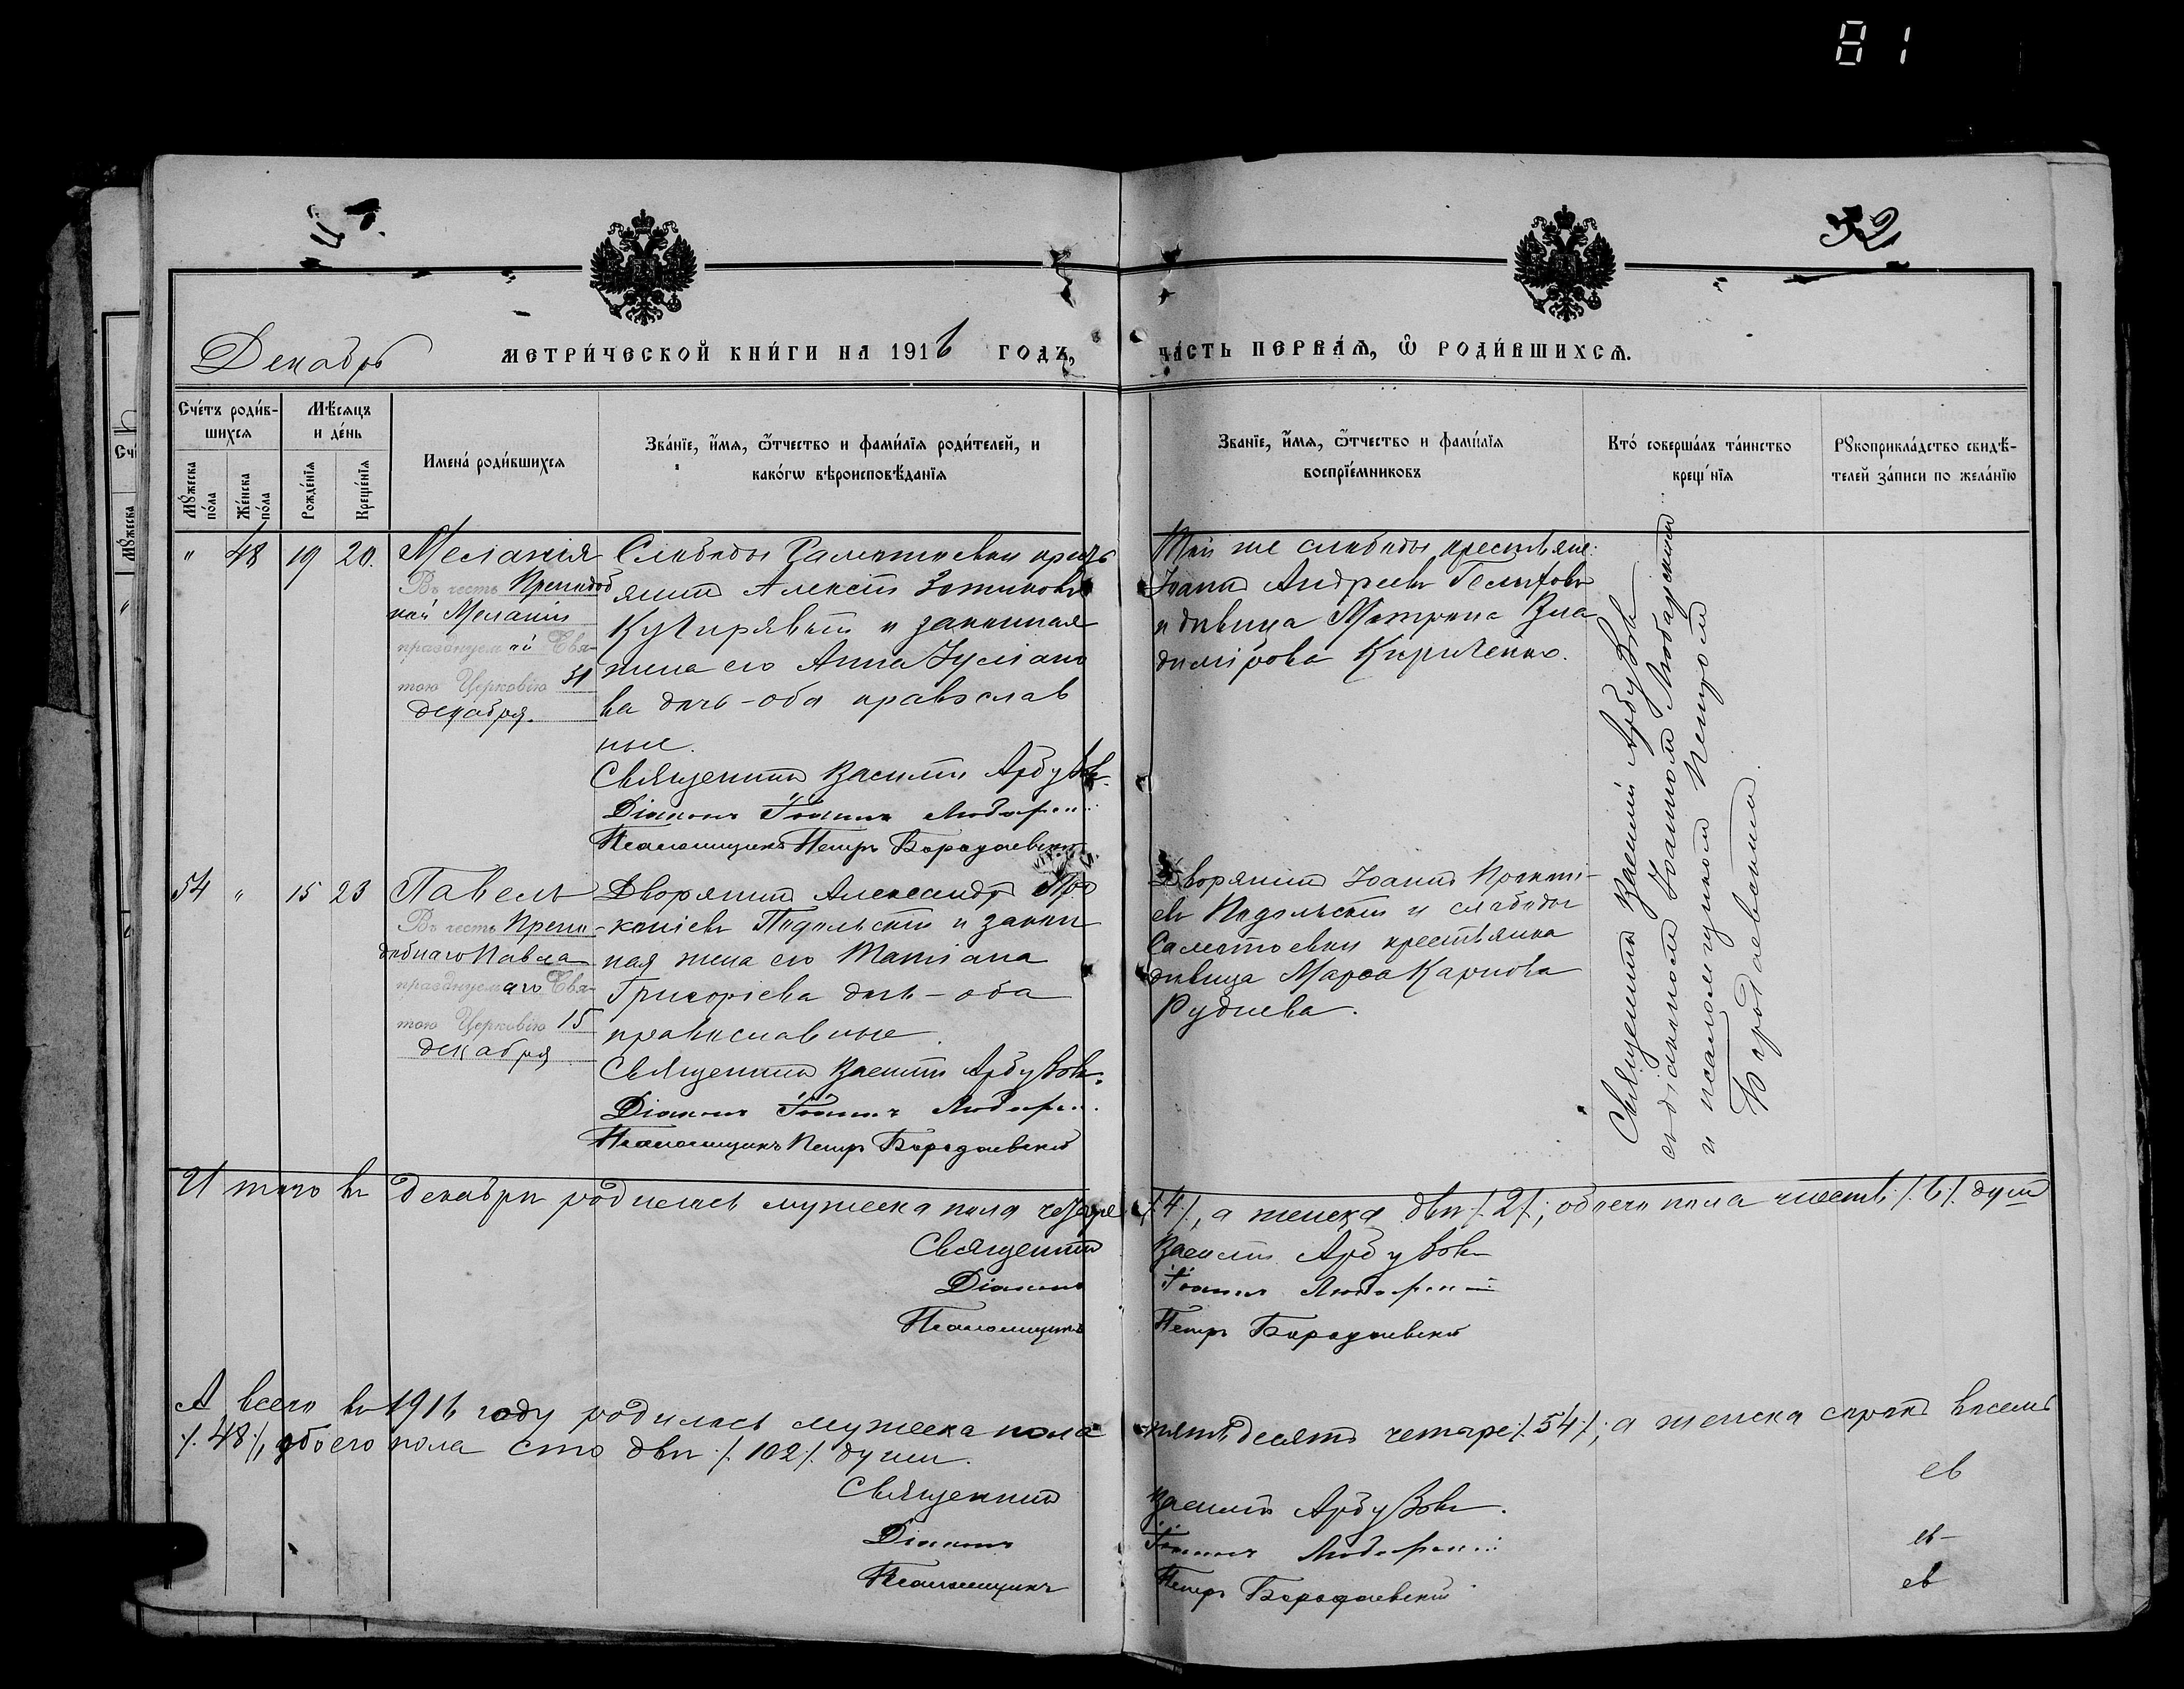 81
52
Декабрь
МЕТРИ́ЧЕСКОЙ КНИ́ГИ НА 1916 ГОДЪ,
ЧА́СТЬ ПЕРВА́Ѧ, Ѡ҆ РОДИ́ВШИХСѦ.
Сче́тъ роди́в-
шихсѧ
Мꙋ́жеска по́ла
Же́нска по́ла
Мѣ́сѧцъ
и де́нь
Рожде́нїѧ
Креще́нїѧ
Имена̀ роди́вшихсѧ
Зва́нїе, и҆́мѧ, ѻ҆́тчество и фами́лїѧ роди́телей, и
како́гѡ вѣроисповѣ́данїѧ
Зва́нїе, и҆́мѧ, ѻ҆́тчество и фами́лїѧ
воспрїе́мниковъ
Кто̀ соверша́лъ та́инство
креще́нїѧ
Рꙋкоприкла́дство свидѣ́-
телей за́писи по жела́нїю
" 48 19 20.
Меланія
Въ честь Преподоб
ной Меланіи
празднуемой Свя-
тою Церковію 31
декабря.
Слободы Саматоевки кресть
янинъ Алексѣй Зотиковъ
и законная
жена его Анна
ва дочь - оба православ
ные.
Священникъ Василій Арбузовъ
Діаконъ Іоаннъ
Псаломщикъ Петръ Бородаевскій
Той же слободы крестьяне:
Іоаннъ Андреевъ
и дѣвица Матрона Вла
димірова Кириченко.
Священникъ Василій Арбузовъ
съ діакономъ Іоанномъ
и псаломщикомъ Петромъ
Бородаевскимъ.
54 " 15 23
Павелъ
Въ честь Препо-
добнаго Павла
празднуемаго Свя-
тою Церковію 15
декабря
Дворянинъ Александръ Про
копіевъ Подольскій и закон
ная жена его Татіана
Григоріева дочь - оба
православные.
Священникъ Василій Арбузовъ.
Діаконъ Іоаннъ
Псаломщикъ Петръ Бородаевскій
Дворянинъ Іоаннъ Прокопі-
евъ Подольскій и слободы
Саматоевки крестьянка
дѣвица Марѳа Карпова
Руднева.
Итого въ декабрѣ родилось мужеска пола четыре
/4/, а женска двѣ /2/; обоего пола шесть /6/ душъ
Священникъ Василій Арбузовъ
Діаконъ Іоаннъ
Псаломщикъ Петръ Бородаевскій
А всего въ 1916 году родилось мужеска пола
пятьдесятъ четыре /54/; а женска сорокъ восемь
/48/, обоего пола сто двѣ /102/ души.
Священникъ Василій Арбузовъ.
Діаконъ Іоаннъ
Псаломщикъ Петръ Бородаевскій